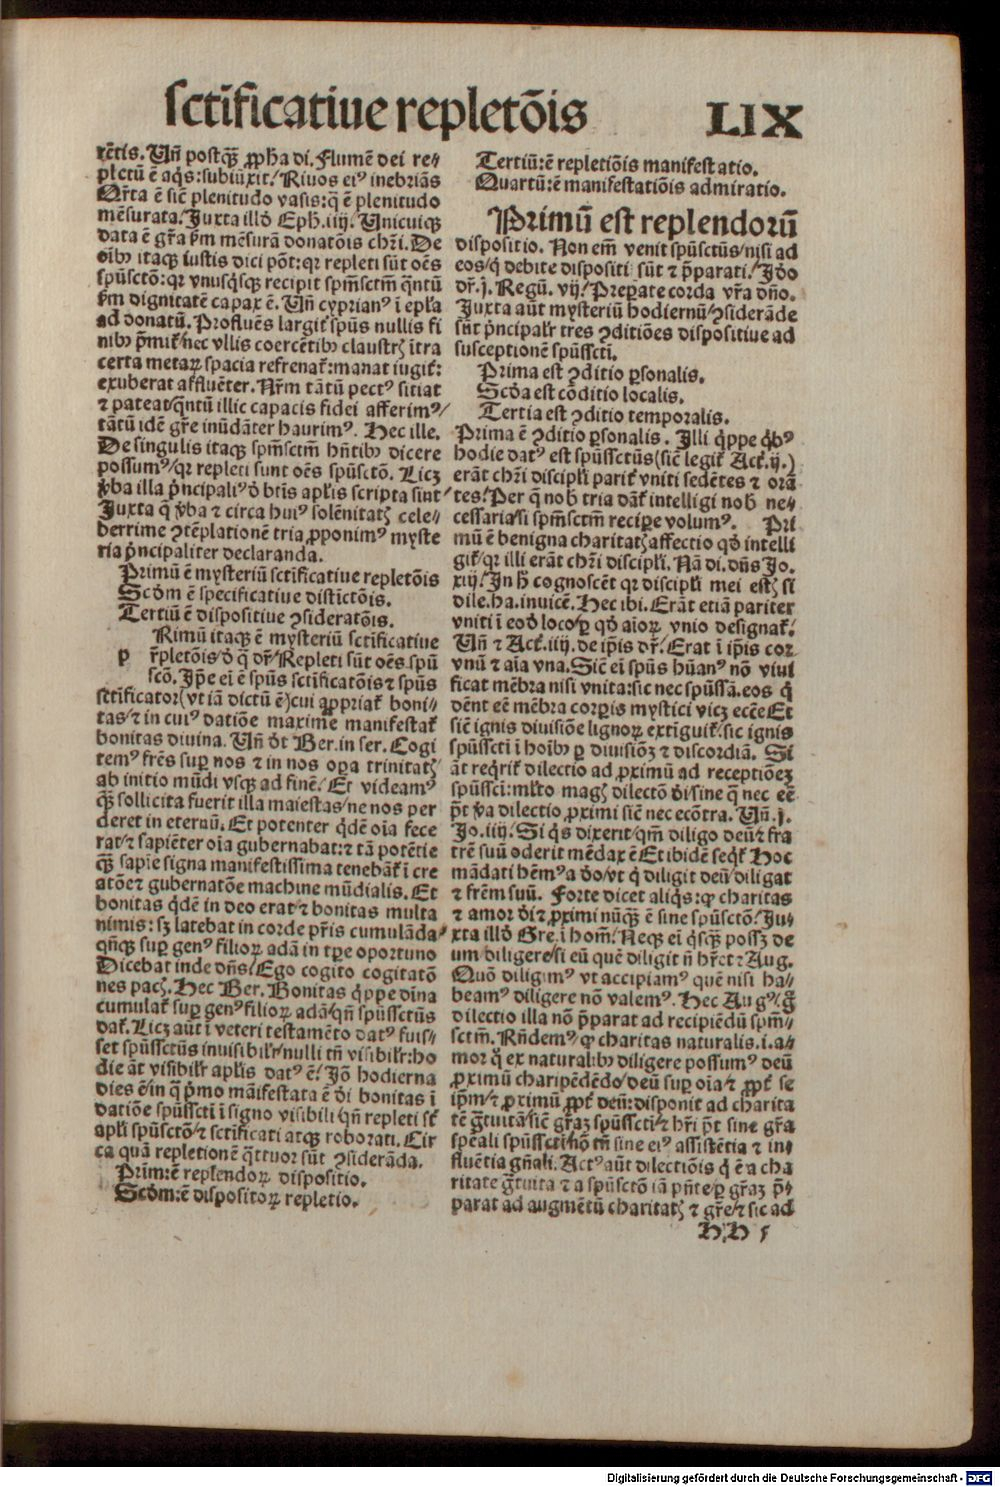 sctīficatiue repletōis LIX
rētis. Uñ postq̃ꝫ ꝓpha di. Flumē dei re⸗
pletū ē aq̃s: subiūxit/ Riuos eiꝰ inebriās
Qr̃ta ē sic̄ plenitudo vasis: q̄ ē plenitudo
mēsurata. Juxta illḋ Eph. iiij. Unicuiqꝫ
data ē gr̃a ẜm mēsurā donatōis chr̃i. De
oībꝰ itaqꝫ iustis dici pōt: qr repleti sūt oēs
spūsctō: qr vnusq̇sqꝫ recipit spm̄sctm̄ q̃ntū
ẜm dignitatē capax ē. Uñ cyprianꝰ ī epl̃a
ad donatū. Profluēs largit᷑ spūs nullis fi
nibꝰ p̄mit᷑/ nec vllis coercētibꝰ claustrꝭ ītra
certa metaꝝ spacia refrenat᷑: manat iugit᷑:
exuberat affluēter. Nr̃m tātū pectꝰ sitiat
⁊ pateat/ q̃ntū illic capacis fidei afferimꝰ/
tātū idē gr̃e inūdāter haurimꝰ. Hec ille.
De singulis itaqꝫ spm̄sctm̄ hñtibꝰ dicere
possumꝰ/ qr repleti sunt oēs spūsctō. Licꝫ
ṽba illa ṗncipaliꝰ ḋ btīs apl̃is scripta sint/
Juxta q̄ ṽba ⁊ circa huiꝰ solēnitatꝭ cele⸗
berrime ꝯtēplationē tria ꝓponimꝰ myste
ria ṗncipaliter declaranda.
Primū ē mysteriū sctificatiue repletōis
Scḋm ē specificatiue distīctōis.
Tertiū ē dispositiue ꝯsideratōis.
p Rimū itaqꝫ ē mysteriū sctificatiue
r̃pletōis/ ḋ q̄ dr̃/ Repleti sūt oēs spū
scō. Ip̄e ei ē spūs sctificatōis ⁊ spūs
sctificator (vt iā dictū ē) cui aꝓpriat᷑ boni⸗
tas/ ⁊ in cuiꝰ datiōe maxime manifestat᷑
bonitas diuina. Uñ ḋt Ber. in ser. Cogi
temꝰ fr̃es suꝑ nos ⁊ in nos oꝑa trinitatꝭ
ab initio mūdi vsqꝫ ad finē/ Et videamꝰ
q̃ꝫ sollicita fuerit illa maiestas/ ne nos per
deret in eternū. Et potenter q̇dē oīa fece
rat/ ⁊ sapiēter oīa gubernabat: ⁊ tā potētie
q̃ꝫ sapīe signa manifestissima tenebāt᷑ ī cre
atōe ⁊ gubernatōe machine mūdialis. Et
bonitas q̇dē in deo erat/ ⁊ bonitas multa
nimis: sꝫ latebat in corde pr̃is cumulāda⸗
qñqꝫ suꝑ genꝰ filioꝝ adā in tꝑe oportuno
Dicebat inde dñs/ Ego cogito cogitatō
nes pacꝭ. Hec Ber. Bonitas q̇ppe dīna
cumulat᷑ suꝑ genꝰ filioꝝ adā/ qñ spūssctūs
dat᷑. Licꝫ aūt ī veteri testamēto datꝰ fuis⸗
set spūssctūs inuisibilr̃/ nulli tñ visibilr̃: ho
die āt visibilr̃ apl̃is datꝰ ē/ Jō hodierna
dies ē/ in q̄ ṗmo māifestata ē ḋi bonitas ī
datiōe spūsscti ī signo visibili/ qñ repleti st̄
apl̃i spūsctō/ ⁊ sctificati atqꝫ roborati. Cir
ca quā repletionē q̃ttuor sūt ꝯsiderāda.
Prim̄: ē replendoꝝ dispositio.
Scḋm: ē dispositoꝝ repletio.
Tertiū: ē repletiōis manifestatio.
Quartū: ē manifestatiōis admiratio.
Primū est replendorū
dispositio. Non em̄ venit spūsctūs/ nisi ad
eos/ q̇ debite dispositi sūt ⁊ p̄parati/ Jḋo
dr̃. j. Regū. vij/ Preꝑate corda vr̃a dño.
Juxta aūt mysteriū hodiernū/ ꝯsiderāde
sūt ṗncipalr̃ tres ꝯditiōes dispositiue ad
susceptionē spūsscti.
Prima est ꝯditio ꝑsonalis.
Scḋa est cōditio localis.
Tertia est ꝯditio temporalis.
Prima ē ꝯditio ꝑsonalis. Illi q̇ppe q̇bꝰ
hodie datꝰ est spūssctūs (sic̄ legit᷑ Act᷑. ij.)
erāt chr̃i discipl̃i parit᷑ vniti sedētes ⁊ orā
tes/ Per q̄ nob̄ tria dāt᷑ intelligi nob̄ ne⸗
cessaria/ si spm̄sctm̄ recipe volumꝰ. Pri
mū ē benigna charitatꝭ affectio qḋ intelli
git᷑/ qr illi erāt chr̃i discipl̃i. Nā di. dñs Jo.
xiij/ In h̄ cognoscēt qr discipl̃i mei estꝭ/ si
dile. ha. inuicē. Hec ibi. Erāt etiā pariter
vniti ī eoḋ loco/ ꝑ qḋ aīoꝝ vnio designat᷑/
Uñ ⁊ Act᷑. iiij. de ip̄is dr̃/ Erat ī ip̄is cor
vnū ⁊ aīa vna. Sic̄ ei spūs hūanꝰ nō viui
ficat mēbra nisi vnita: sic nec spūssā. eos q̇
dēnt eē mēbra corꝑis mystici vicꝫ ecc̄e Et
sic̄ ignis diuisiōe lignoꝝ extīguit᷑: sic ignis
spūsscti ī hoībꝰ ꝑ diuisiōꝫ ⁊ discordiā. Si
āt req̇rit᷑ dilectio ad ꝓximū ad receptiōeꝫ
spūssci: ml̃to magꝭ dilectō ḋi/ sine q̄ nec eē
p̄t ṽa dilectio ꝓximi sic̄ nec ecōtra. Uñ. j.
Jo. iiij/ Si q̇s dixerit/ qm̄ diligo deū/ ⁊ fra
trē suū oderit mēdax ē Et ibidē seq̇t᷑ Hoc
mādati hēmꝰ a ḋo/ vt q̇ diligit deū/ diligat
⁊ fr̃em suū. Forte dicet aliq̇s: ꝙ charitas
⁊ amor ḋi ⁊ ꝓximi nūq̃ꝫ ē sine spūsctō/ Ju⸗
xta illḋ Gre. ī hom̄/ Neqꝫ ei q̇sq̃ꝫ possꝫ de
um diligere/ si eū quē diligit ñ hr̃et ⁊ Aug.
Quō diligimꝰ vt accipiamꝰ quē nisi ha⸗
beamꝰ diligere nō valemꝰ. Hec Augꝰ/ g̃
dilectio illa nō p̄parat ad recipiēdū spm̄⸗
sctm̄. Rñdemꝰ/ ꝙ charitas naturalis. i. a⸗
mor q̇ ex naturalibꝰ diligere possumꝰ deū
ꝓximū charipēdēdo/ deū suꝑ oīa/ ⁊ ꝓpt᷑ se
ip̄m/ ⁊ ꝓximū ꝓpt᷑ deū: disponit ad charita
tē g̃tuitā/ sic̄ gr̃aꝫ spūsscti/ ⁊ hr̃i p̄t sine gr̃a
spēali spūsscti/ nō tñ sine eiꝰ assistētia ⁊ in⸗
fluētia gñali. Actꝰ aūt dilectiōis q̇ ē a cha
ritate g̃tuita ⁊ a spūsctō iā pñte/ ꝑ gr̃aꝫ p̄⸗
parat ad augmētū charitatꝭ ⁊ gr̃e/ ⁊ sic ad
HH 5
Digitalisierung gefördert durch die Deutsche Forschungsgemeinschaft - DFG